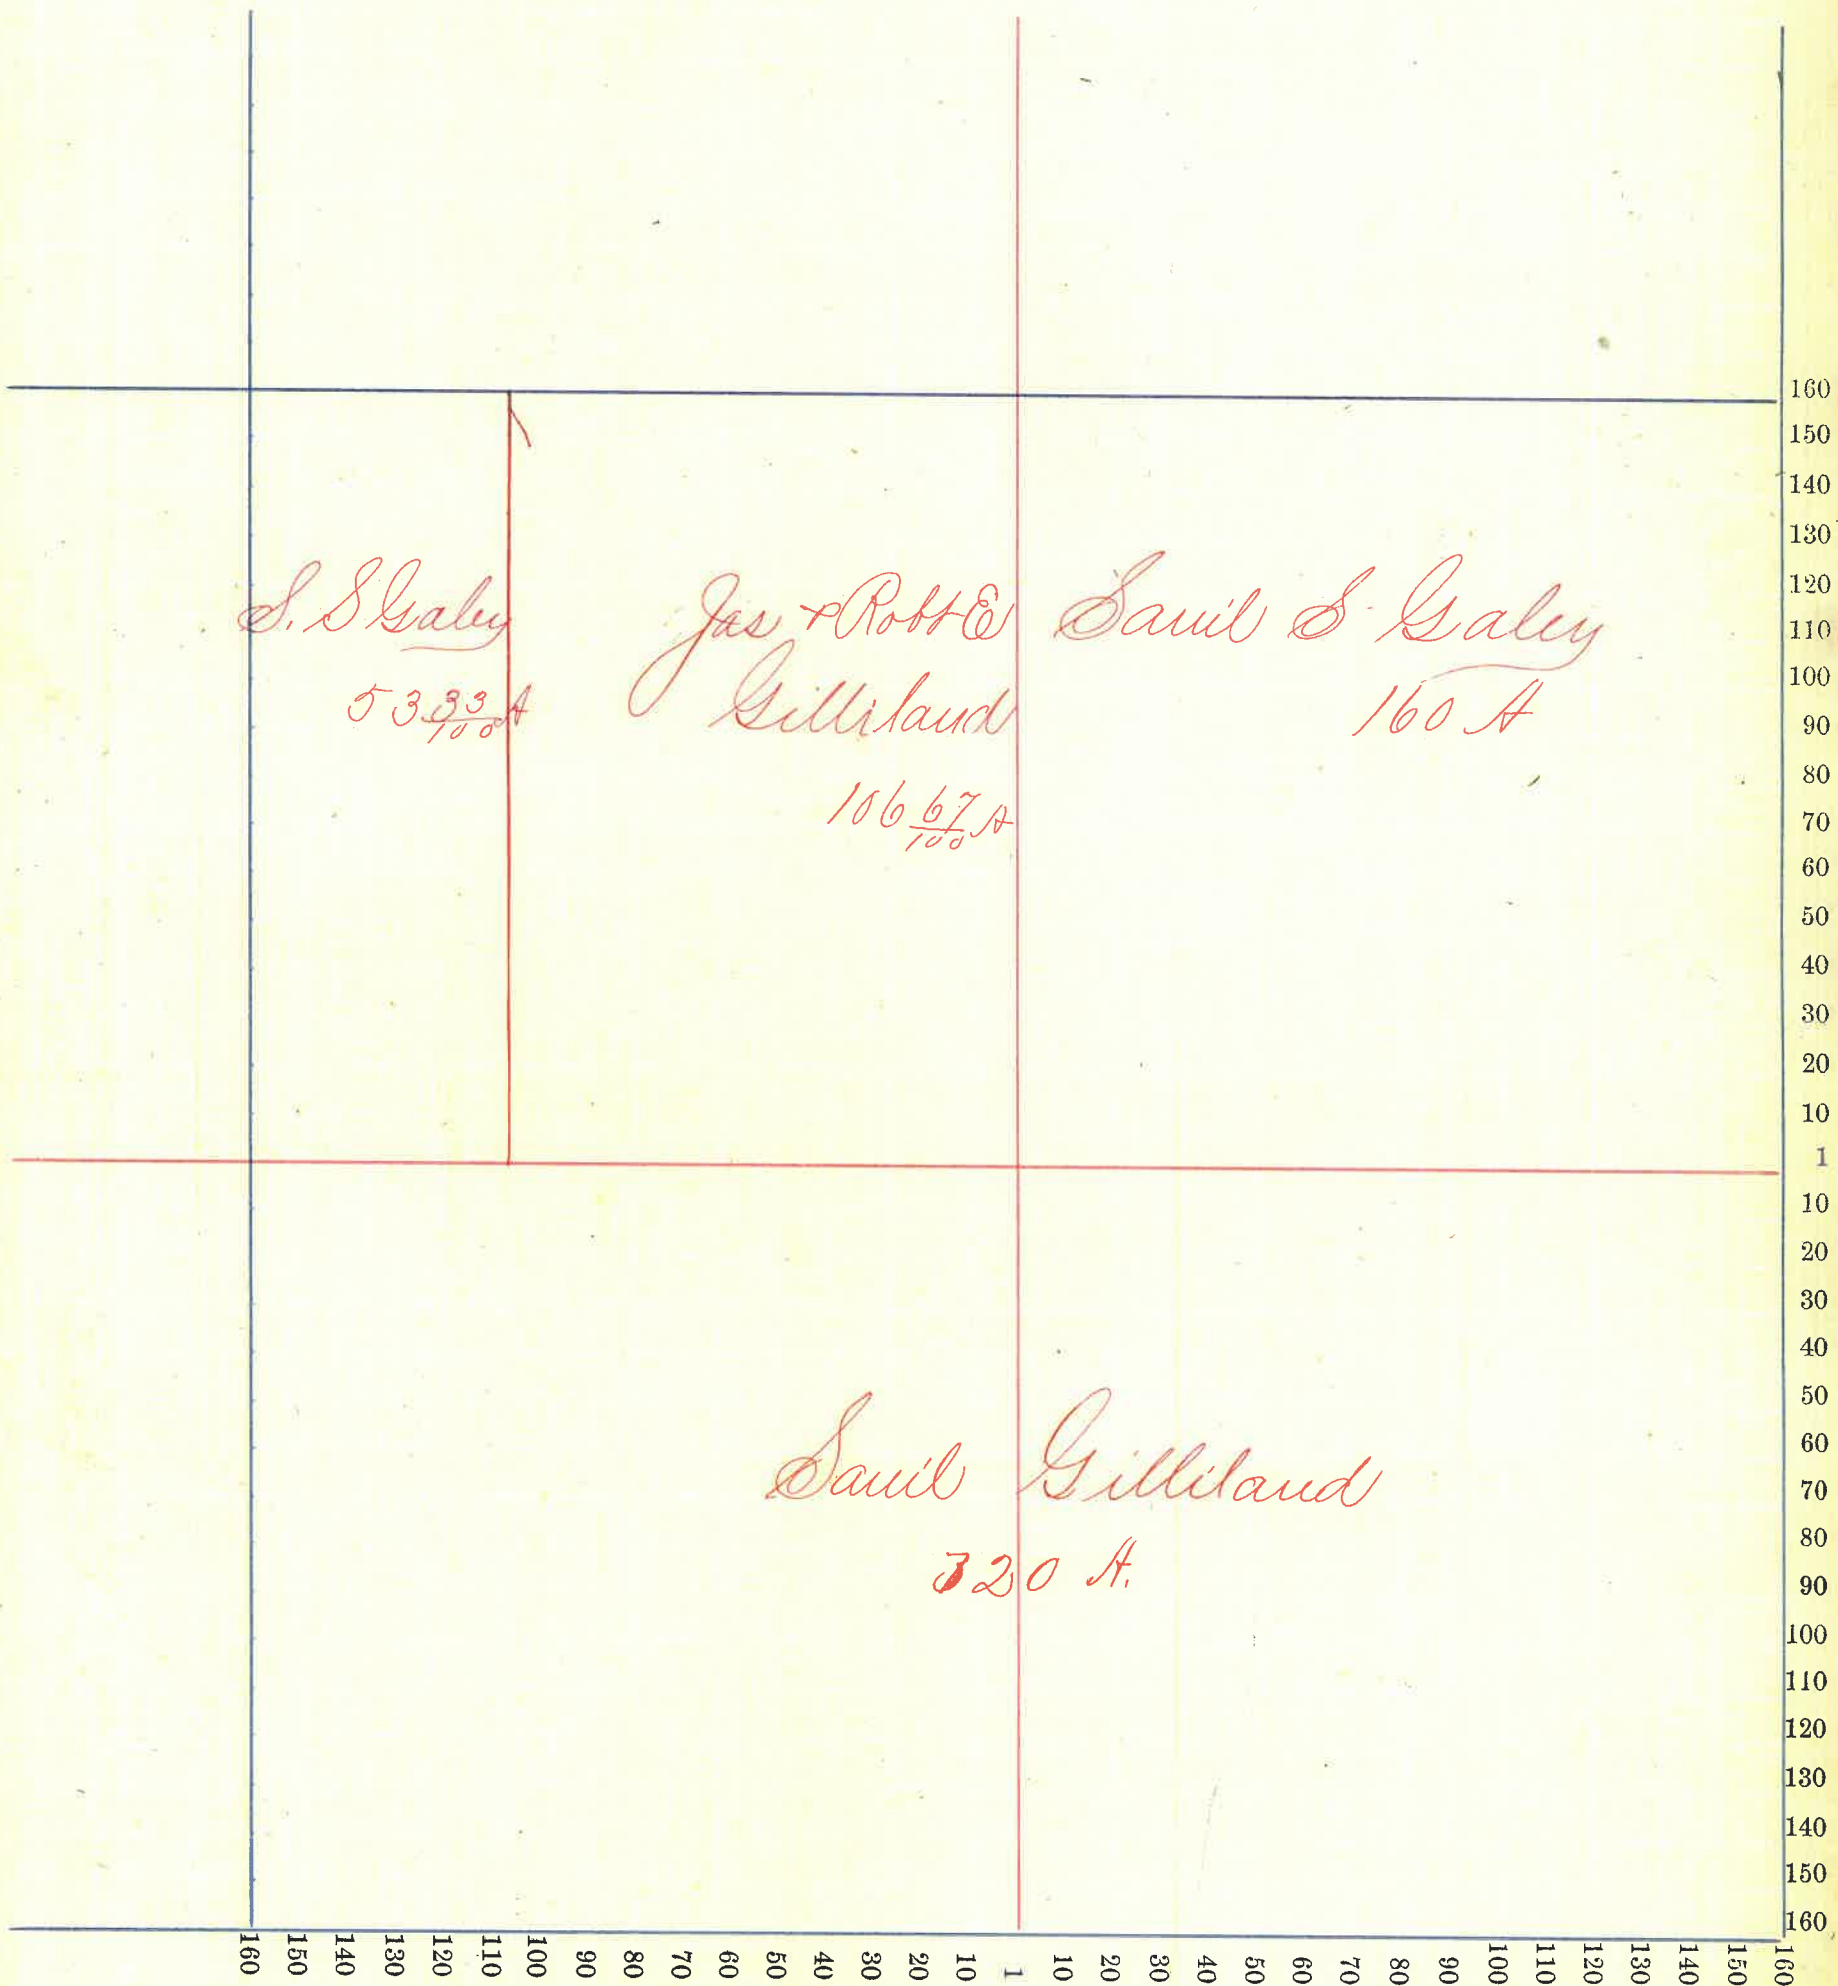 S. S Galey
53 33/100 A
Jas + Robt E
Gilliland
106 67/100 A
Sam'l S. Galey
160 A
Sam'l Gilliland
320 A.
160
150
140
130
120
110
100
90
80
70
60
50
40
30
20
10
1
10
20
30
40
50
60
70
80
90
100
110
120
130
140
150
160
160 150 140 130 120 110 100 90 80 70 60 50 40 30 20 10 1 10 20 30 40 50 60 70 80 90 100 110 120 130 140 150 160